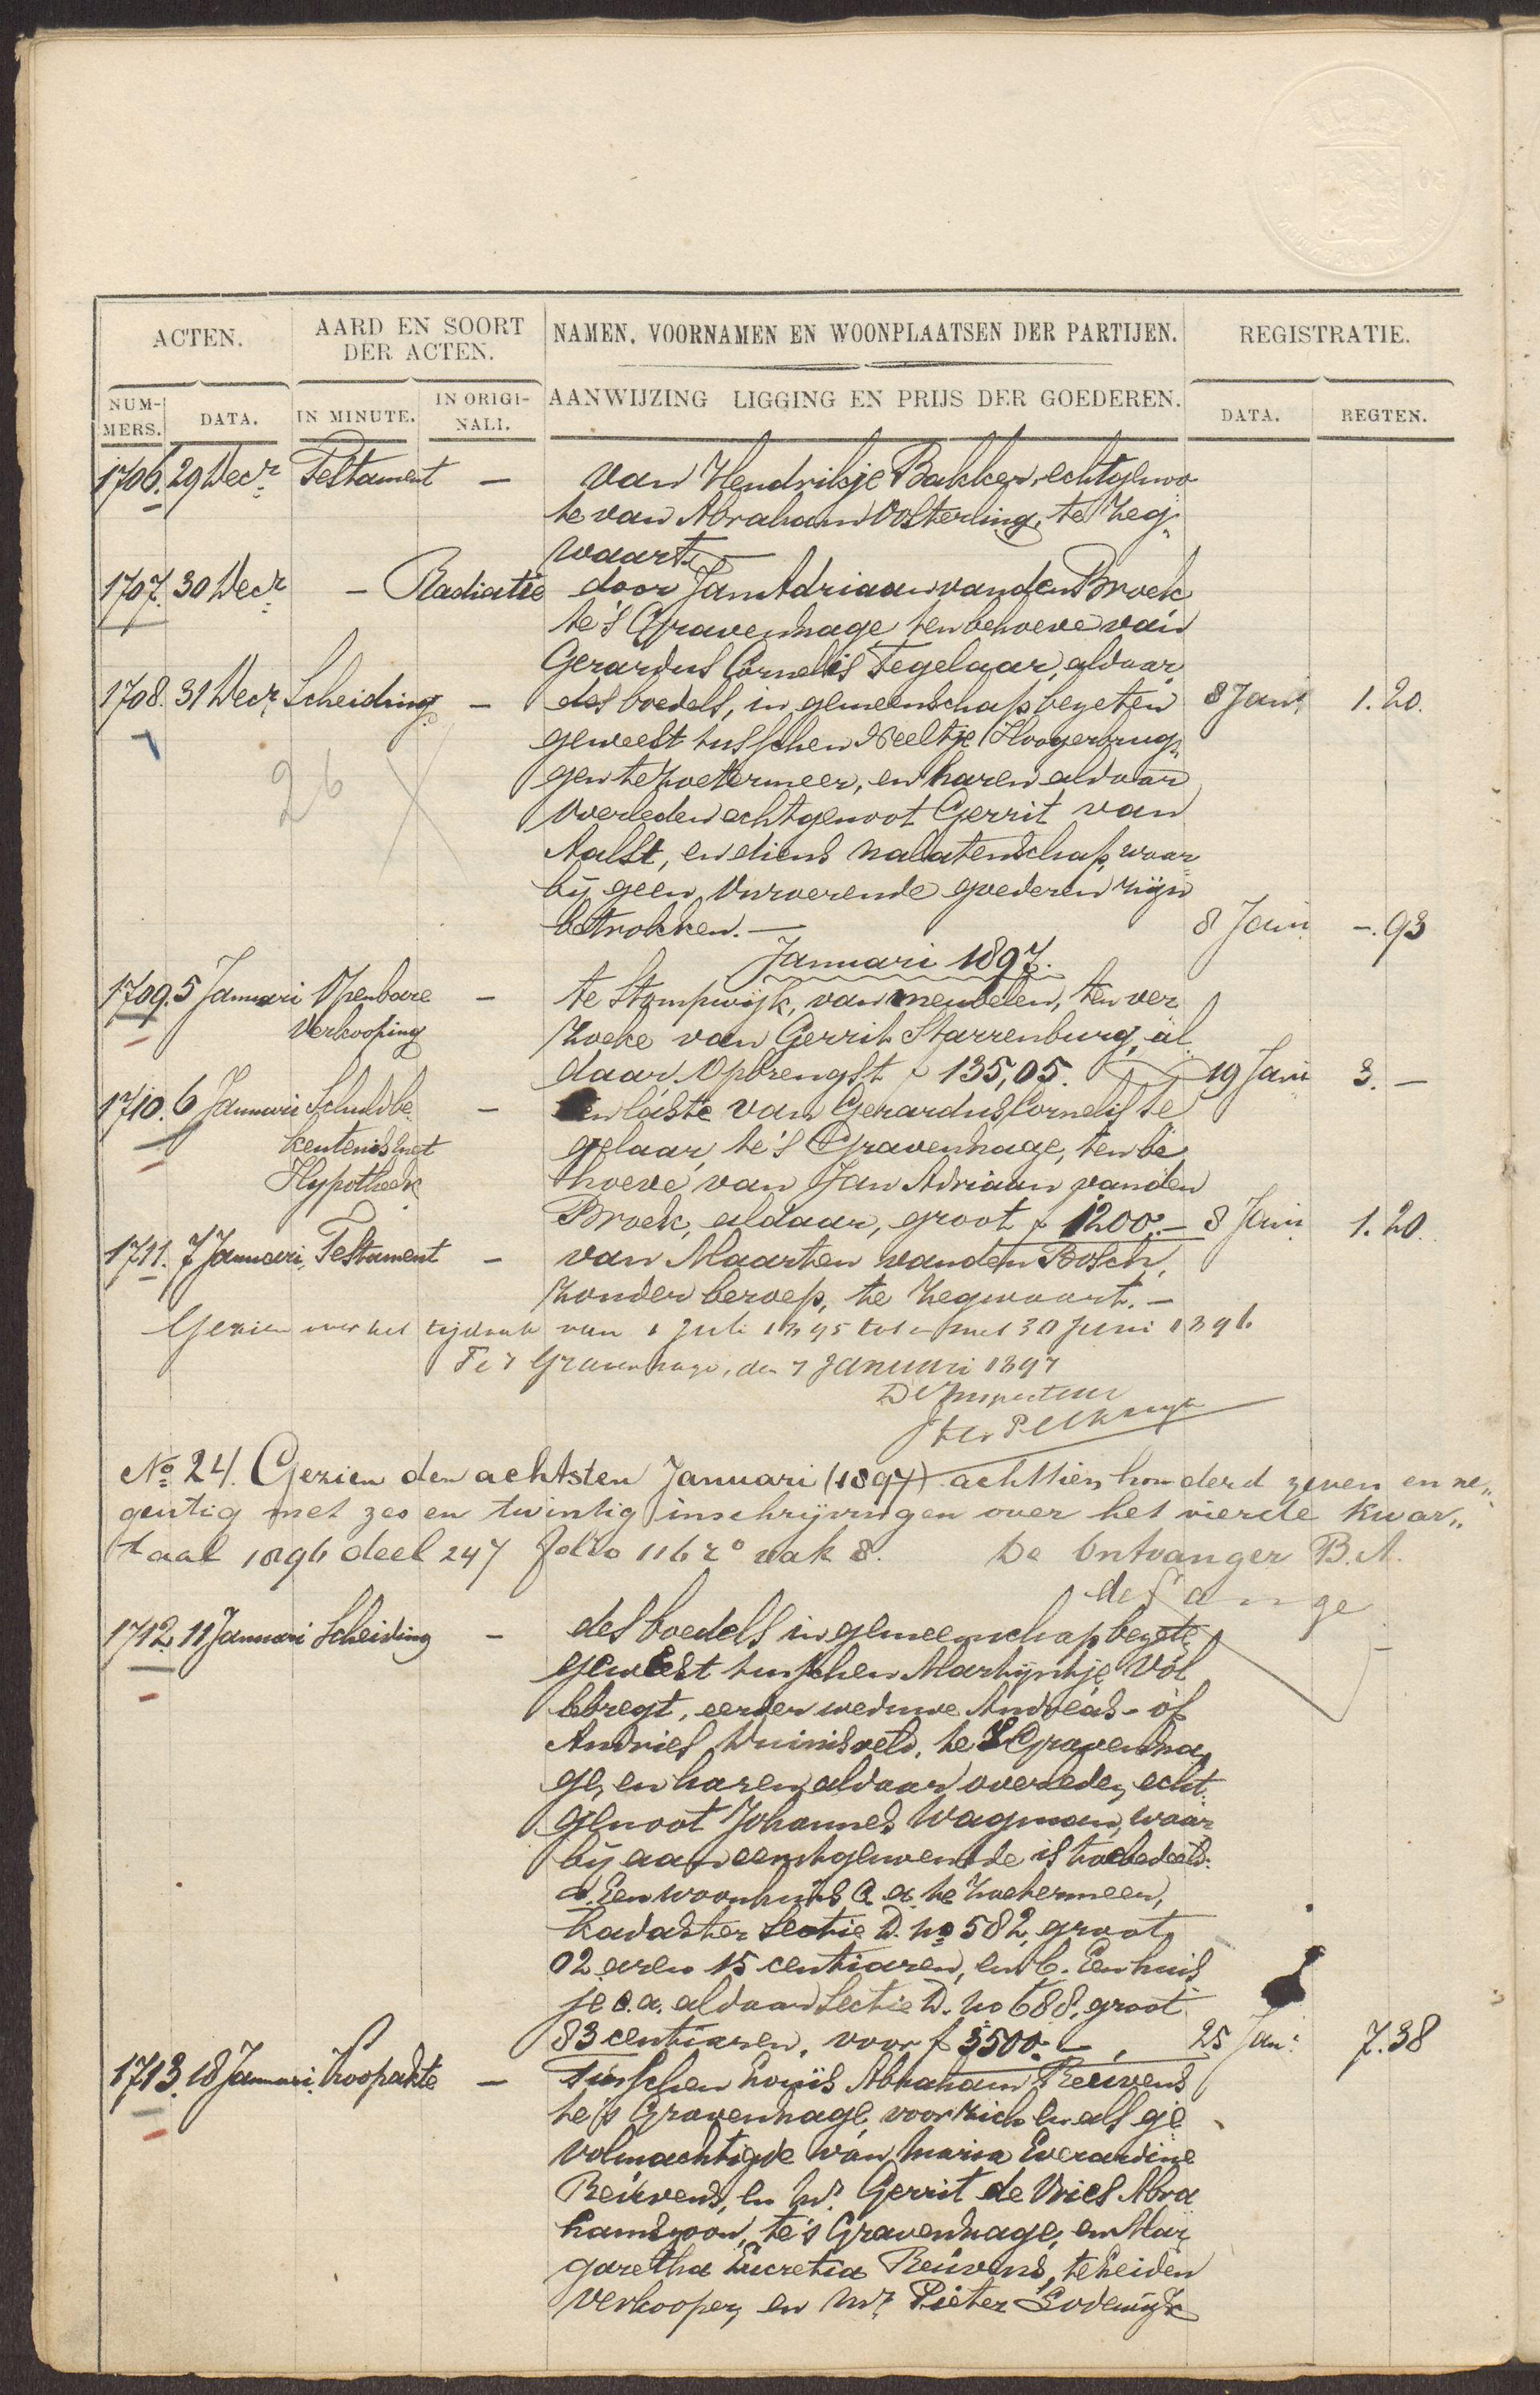 ACTEN.
AARD EN SOORT
DER ACTEN.
NAMEN, VOORNAMEN EN WOONPLAATSEN DER PARTIJEN.
REGISTRATIE.
NUM-
MERS.
DATA.
IN MINUTE.
IN ORIGI-
NALI.
AANWIJZING LIGGING EN PRIJS DER GOEDEREN.
DATA.
REGTEN.
1706. 29 Decr Testament — van Hendrikje Bakker, echtgenoo
te van Abraham Oosterling, te Zeg„
waart. —
1707. 30 Decr — Radiatie door Jan Adriaan van den Broek
te 's Gravenhage, ten behoeve van
Gerardus Cornelis Tegelaar, aldaar
1708. 31 Decr Scheiding — des boedels, in gemeenschap bezeten 8 Jani 1. 20.
geweest tusschen Neeltje Hoogerbrug„
gen te Zoetermeer, en haren aldaar
26
overleden echtgenoot Gerrit van
Aalst, en diens nalatenschap, waar
bij geen onroerende goederen zijn
betrokken. — 8 Jani —. 93
Januari 1897.
1709. 5 Januari Openbare — te Stompwijk, van meubelen, ten ver
Verkooping zoeke van Gerrit Starrenburg, al
daar. Opbrengst f 135,05. 19 Jani 3. —
1710. 6 Januari Schuldbe — ten laste van Gerardus Cornelis Te
kentenis met gelaar, te 's Gravenhage, ten be
Hypotheek hoeve van Jan Adriaan van den
Broek, aldaar, groot f 1200.— 8 Jani 1. 20.
1711. 7 Januari Testament — van Maarten van den Bosch,
zonder beroep, te Zegwaart. —
Gezien over het tijdvak van 1 Juli 1895 tot en met 30 Juni 1896
Te 's Gravenhage, den 7 Januari 1897
De Inspecteur
No 24. Gezien den achtsten Januari (1897) achttien honderd zeven en ne„
gentig met zes en twintig inschrijvingen over het vierde kwar„
taal 1896 deel 247 folio 116 ro vak 8. De Ontvanger B. A.
de Lange
1712. 11 Januari Scheiding — des boedels in gemeenschap bezeten —
geweest tusschen Martijntje Vol
lebregt, eerder weduwe Andreas- of
Andries Duinisveld, te 's Gravenha
ge, en haren aldaar overleden echt
genoot Johannes Wagman, waar
bij aan eerstgenoemde is toebedeeld:
a. Een woonhuis c. a. te Zoetermeer,
kadaster Sectie D. no 582, groot
02 aren 15 centiaren, en b. Een huis
je c. a. aldaar Sectie D. no 688, groot
83 centiaren, voor f 3500.— 25 Jan: 7. 38
1713. 18 Januari Koopakte — tusschen Louis Abraham Reuvens
te 's Gravenhage, voor zich en als ge
volmachtigde van Maria Everardine
Reuvens, en Mr. Gerrit de Vries Abra
hamszoon, te 's Gravenhage, en Mar
garetha Lucretia Reuvens, te Leiden
verkooper, en Mr. Pieter Lodewijk